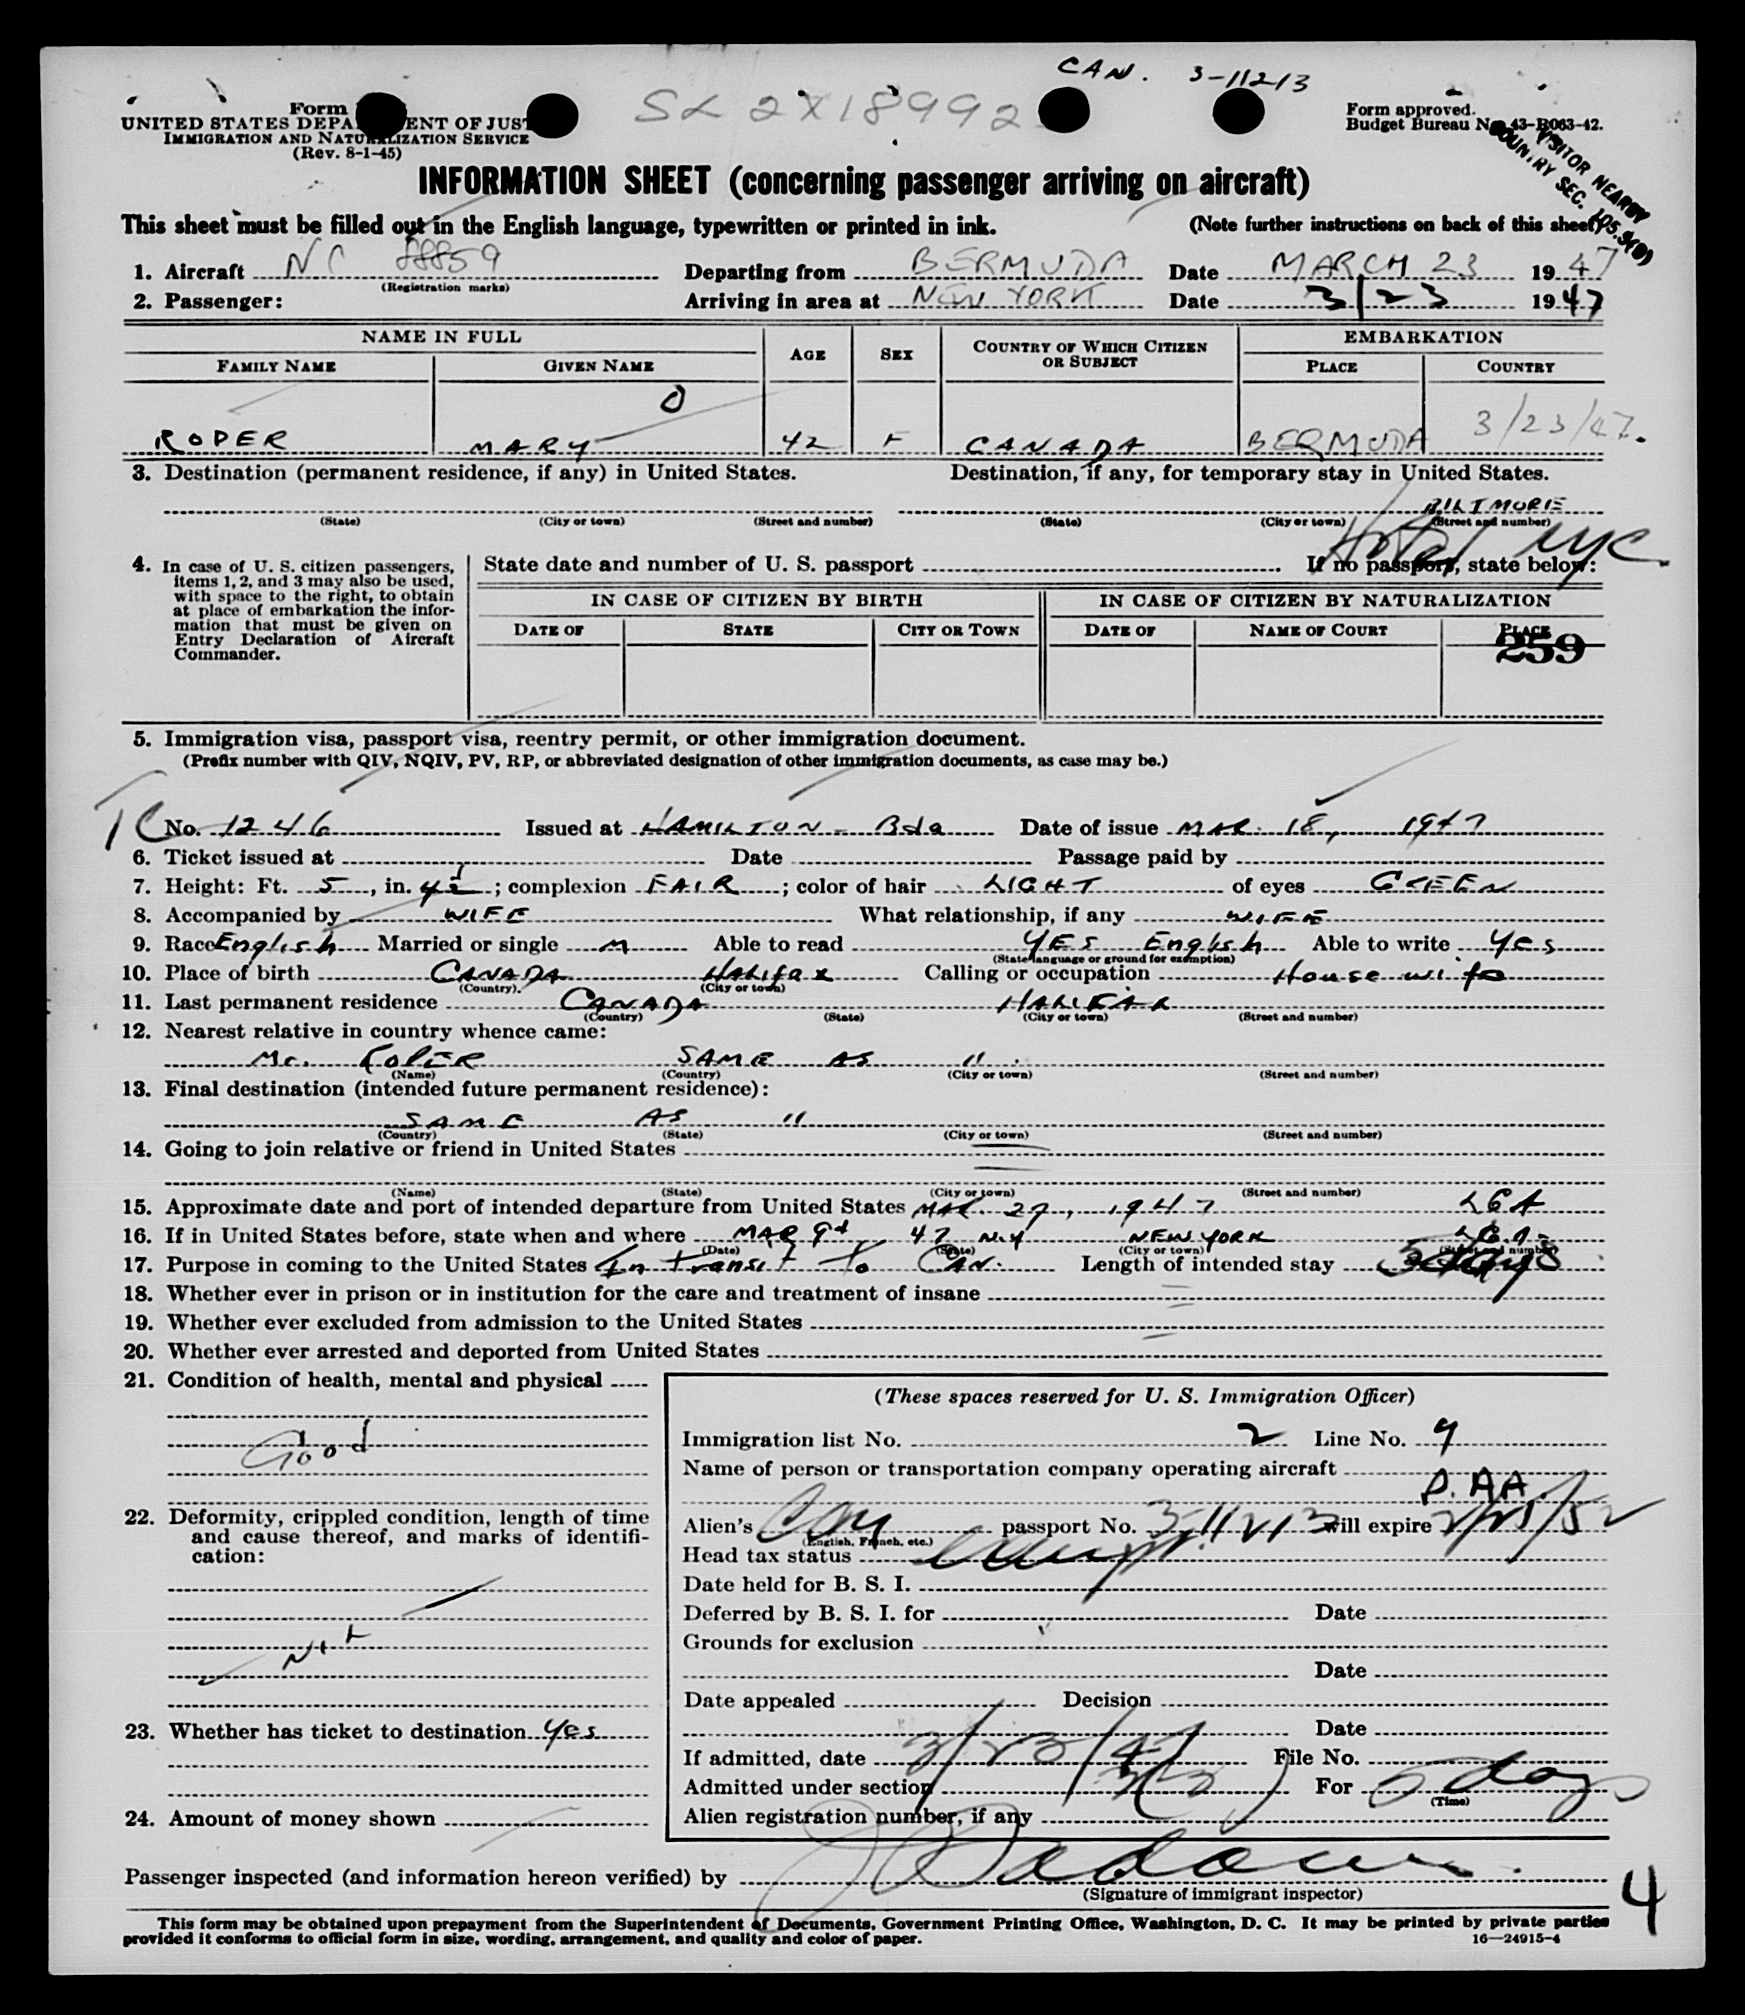 CAN. 3-11213
SL 2X18992
Form
UNITED STATES DEPA ENT OF JUST
IMMIGRATION AND NATURALIZATION SERVICE
(Rev. 8-1-45)
Form approved.
Budget Bureau No. 43-R063-42.
VISITOR NEARBY
COUNTRY SEC.
INFORMATION SHEET (concerning passenger arriving on aircraft)
This sheet must be filled out in the English language, typewritten or printed in ink. (Note further instructions on back of this sheet)
1. Aircraft NC 88859 Departing from BERMUDA Date MARCH 23 1947
(Registration marks)
2. Passenger: Arriving in area at NEW YORK Date 3/23 1947
NAME IN FULL AGE SEX COUNTRY OF WHICH CITIZEN OR SUBJECT EMBARKATION
FAMILY NAME GIVEN NAME PLACE COUNTRY
O
ROPER MARY 42 F CANADA BERMUDA 3/23/47.
3. Destination (permanent residence, if any) in United States. Destination, if any, for temporary stay in United States.
BILTMORE
(State) (City or town) (Street and number) (State) (City or town) (Street and number)
Hotel NYC
4. In case of U. S. citizen passengers, items 1, 2, and 3 may also be used, with space to the right, to obtain at place of embarkation the information that must be given on Entry Declaration of Aircraft Commander.
State date and number of U. S. passport If no passport, state below:
IN CASE OF CITIZEN BY BIRTH IN CASE OF CITIZEN BY NATURALIZATION
DATE OF STATE CITY OR TOWN DATE OF NAME OF COURT PLACE
259
5. Immigration visa, passport visa, reentry permit, or other immigration document.
(Prefix number with QIV, NQIV, PV, RP, or abbreviated designation of other immigration documents, as case may be.)
TC No. 1246 Issued at HAMILTON - Bda Date of issue MAR. 18, 1947
6. Ticket issued at Date Passage paid by
7. Height: Ft. 5, in. 4½; complexion FAIR; color of hair LIGHT of eyes GREEN
8. Accompanied by WIFE What relationship, if any WIFE
9. Race English Married or single M Able to read YES English Able to write Yes
(State language or ground for exemption)
10. Place of birth CANADA Halifax Calling or occupation House wife
(Country). (City or town)
11. Last permanent residence CANADA HALIFAX
(Country) (State) (City or town) (Street and number)
12. Nearest relative in country whence came:
Mr. ROPER SAME AS 11.
(Name) (Country) (City or town) (Street and number)
13. Final destination (intended future permanent residence):
SAME AS 11
(Country) (State) (City or town) (Street and number)
14. Going to join relative or friend in United States
(Name) (State) (City or town) (Street and number)
15. Approximate date and port of intended departure from United States MAR. 27, 1947 LGA
16. If in United States before, state when and where MAR 9th 47 N.Y NEW YORK LGA
(Date) (State) (City or town) (Street and number)
17. Purpose in coming to the United States In transit to CAN. Length of intended stay 5 days
18. Whether ever in prison or in institution for the care and treatment of insane
19. Whether ever excluded from admission to the United States
20. Whether ever arrested and deported from United States
21. Condition of health, mental and physical
Good
22. Deformity, crippled condition, length of time and cause thereof, and marks of identification:
23. Whether has ticket to destination Yes
24. Amount of money shown
(These spaces reserved for U. S. Immigration Officer)
Immigration list No. 2 Line No. 9
Name of person or transportation company operating aircraft
P. AA.
Alien's Can passport No. 3-11213 will expire
(English, French, etc.)
Head tax status
Date held for B. S. I.
Deferred by B. S. I. for Date
Grounds for exclusion
Date
Date appealed Decision
Date
If admitted, date 3/23/47 File No.
Admitted under section 3(2) For 5 days
(Time)
Alien registration number, if any
Passenger inspected (and information hereon verified) by
(Signature of immigrant inspector)
4
This form may be obtained upon prepayment from the Superintendent of Documents, Government Printing Office, Washington, D. C. It may be printed by private parties
provided it conforms to official form in size, wording, arrangement, and quality and color of paper. 16—24915-4